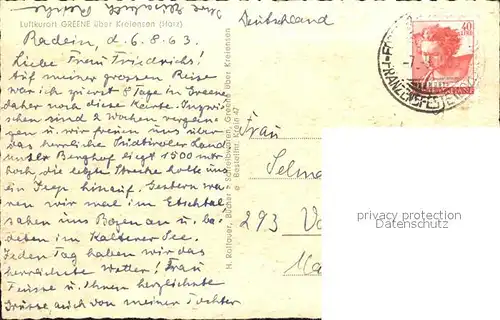 Luftkurort GREENE über Kreiensen (Harz)
Radein, d. 6. 8. 63.
Liebe Frau Friedrichs!
Auf meiner grossen Reise
war ich zuerst 8 Tage in Greene,
daher noch diese Karte. Inzwi-
schen sind 2 Wochen vergan-
gen u. wir freuen uns über
das herrliche Südtiroler Land
unser Berghof liegt 1500 mtr
hoch, die letzte Strecke holte uns
ein Jeep hinauf. Gestern wa-
ren wir mal im Etschtal
sahen uns Bozen an u. ba-
deten im Kalterer See.
Jeden Tag haben wir das
herrlichste Wetter! Frau
Feisse u. Ihnen herzlichste
Grüsse, auch von meiner Tochter
H. Rollauer, Bücher + Schreibwaren, Greene über Kreiensen
Deutschland
40
Frau
Selma
293
privacy protection
Datenschutz